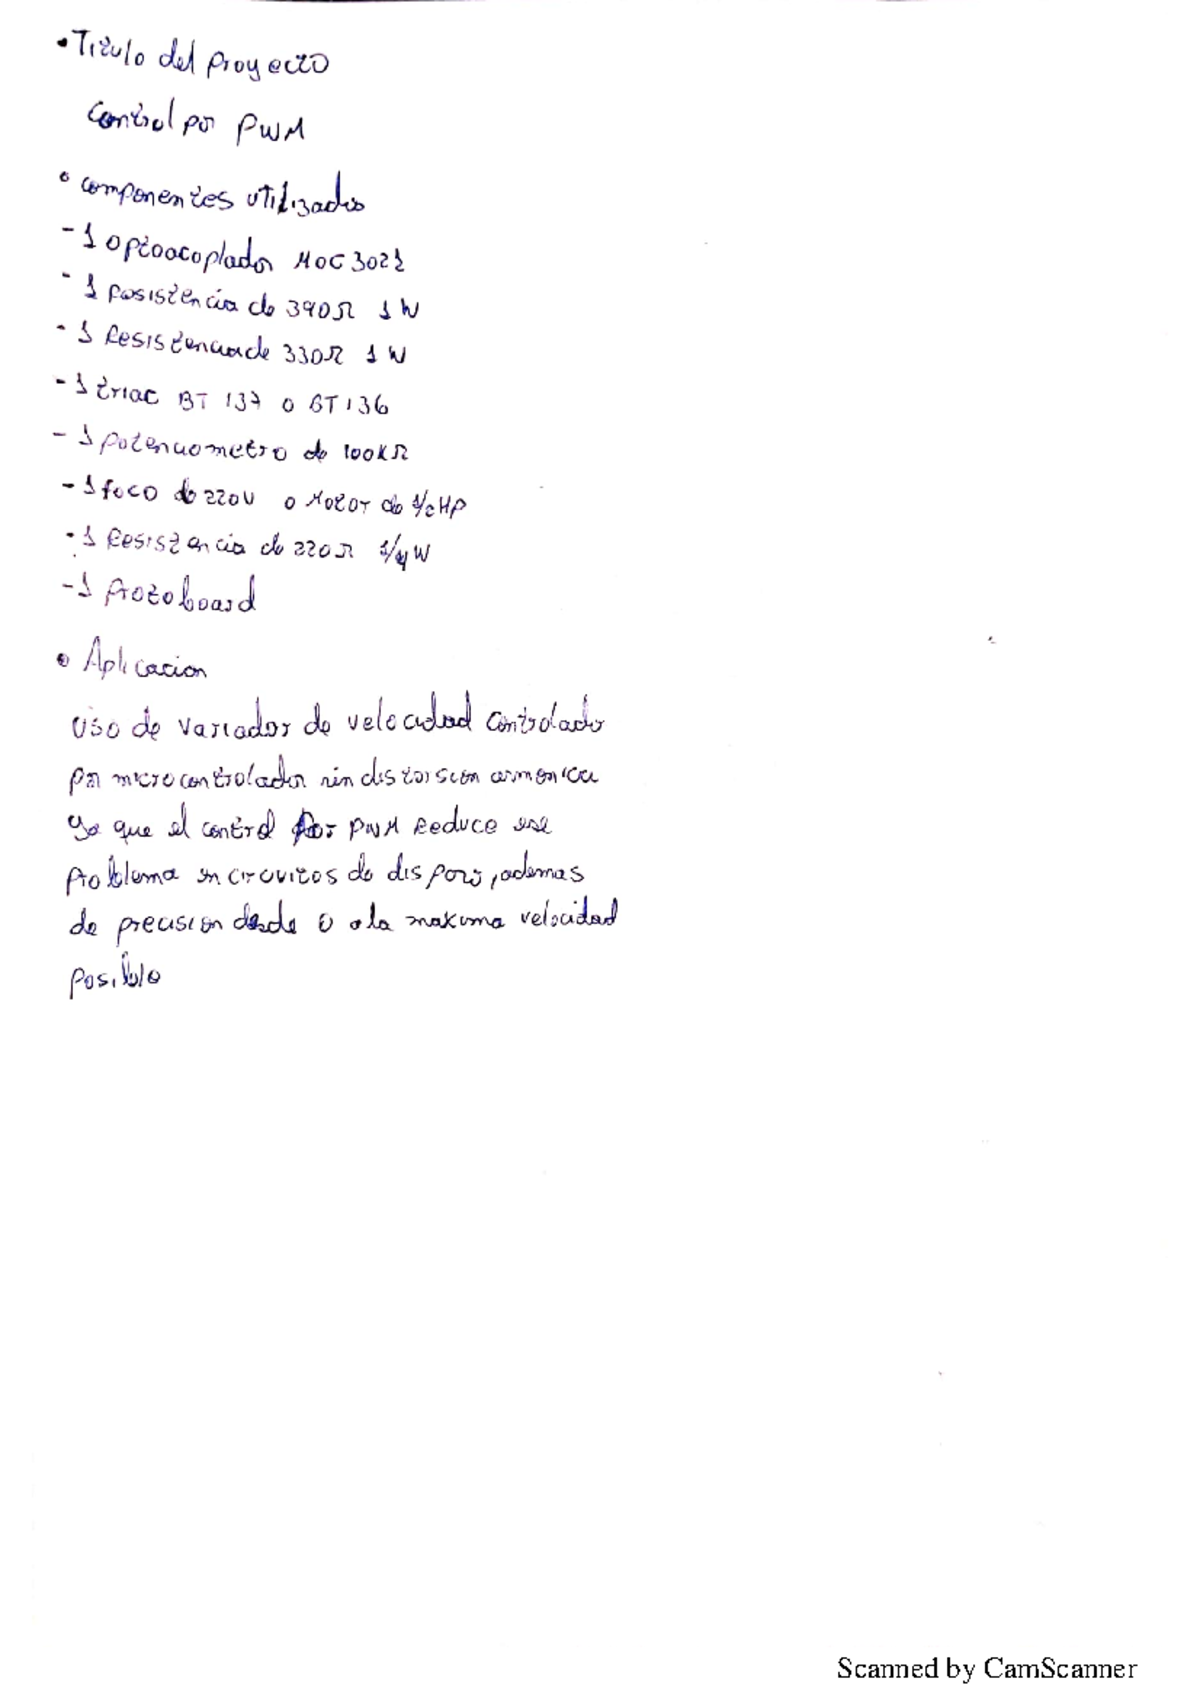 • Titulo del proyecto
Control por PWM
• componentes utilizados
- 1 optoacoplador MOC 3021
- 1 resistencia de 390Ω 1 W
- 1 Resistencia de 330Ω 1 W
- 1 triac BT 137 o BT 136
- 1 potenciometro de 100KΩ
- 1 foco de 220V o Motor de 1/2 HP
- 1 Resistencia de 220Ω 1/4 W
- 1 Protoboard
• Aplicacion
Uso de variador de velocidad controlado
por microcontrolador sin distorsion armonica
ya que el control por PWM Reduce ese
problema en circuitos de disparo, ademas
de precision desde 0 a la maxima velocidad
posible
Scanned by CamScanner